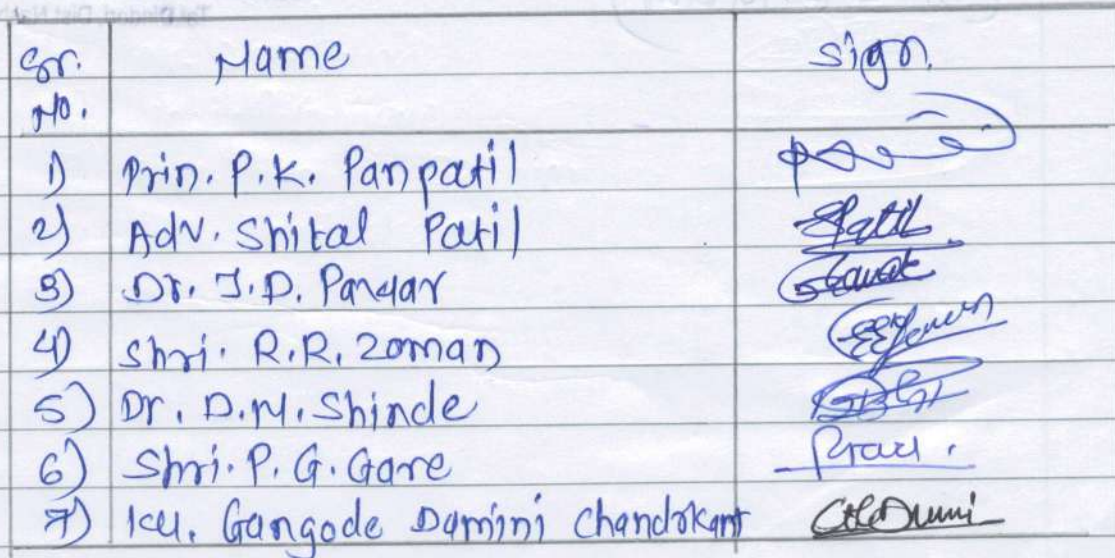 Sr. No. Name Sign.
1) Prin. P. K. Panpatil
2) Adv. Shital Patil SPatil
3) Dr. J. D. Pawar
4) Shri. R. R. Zoman
5) Dr. D. N. Shinde
6) Shri. P. G. Gare
7) Ku. Gangode Damini Chandrakant